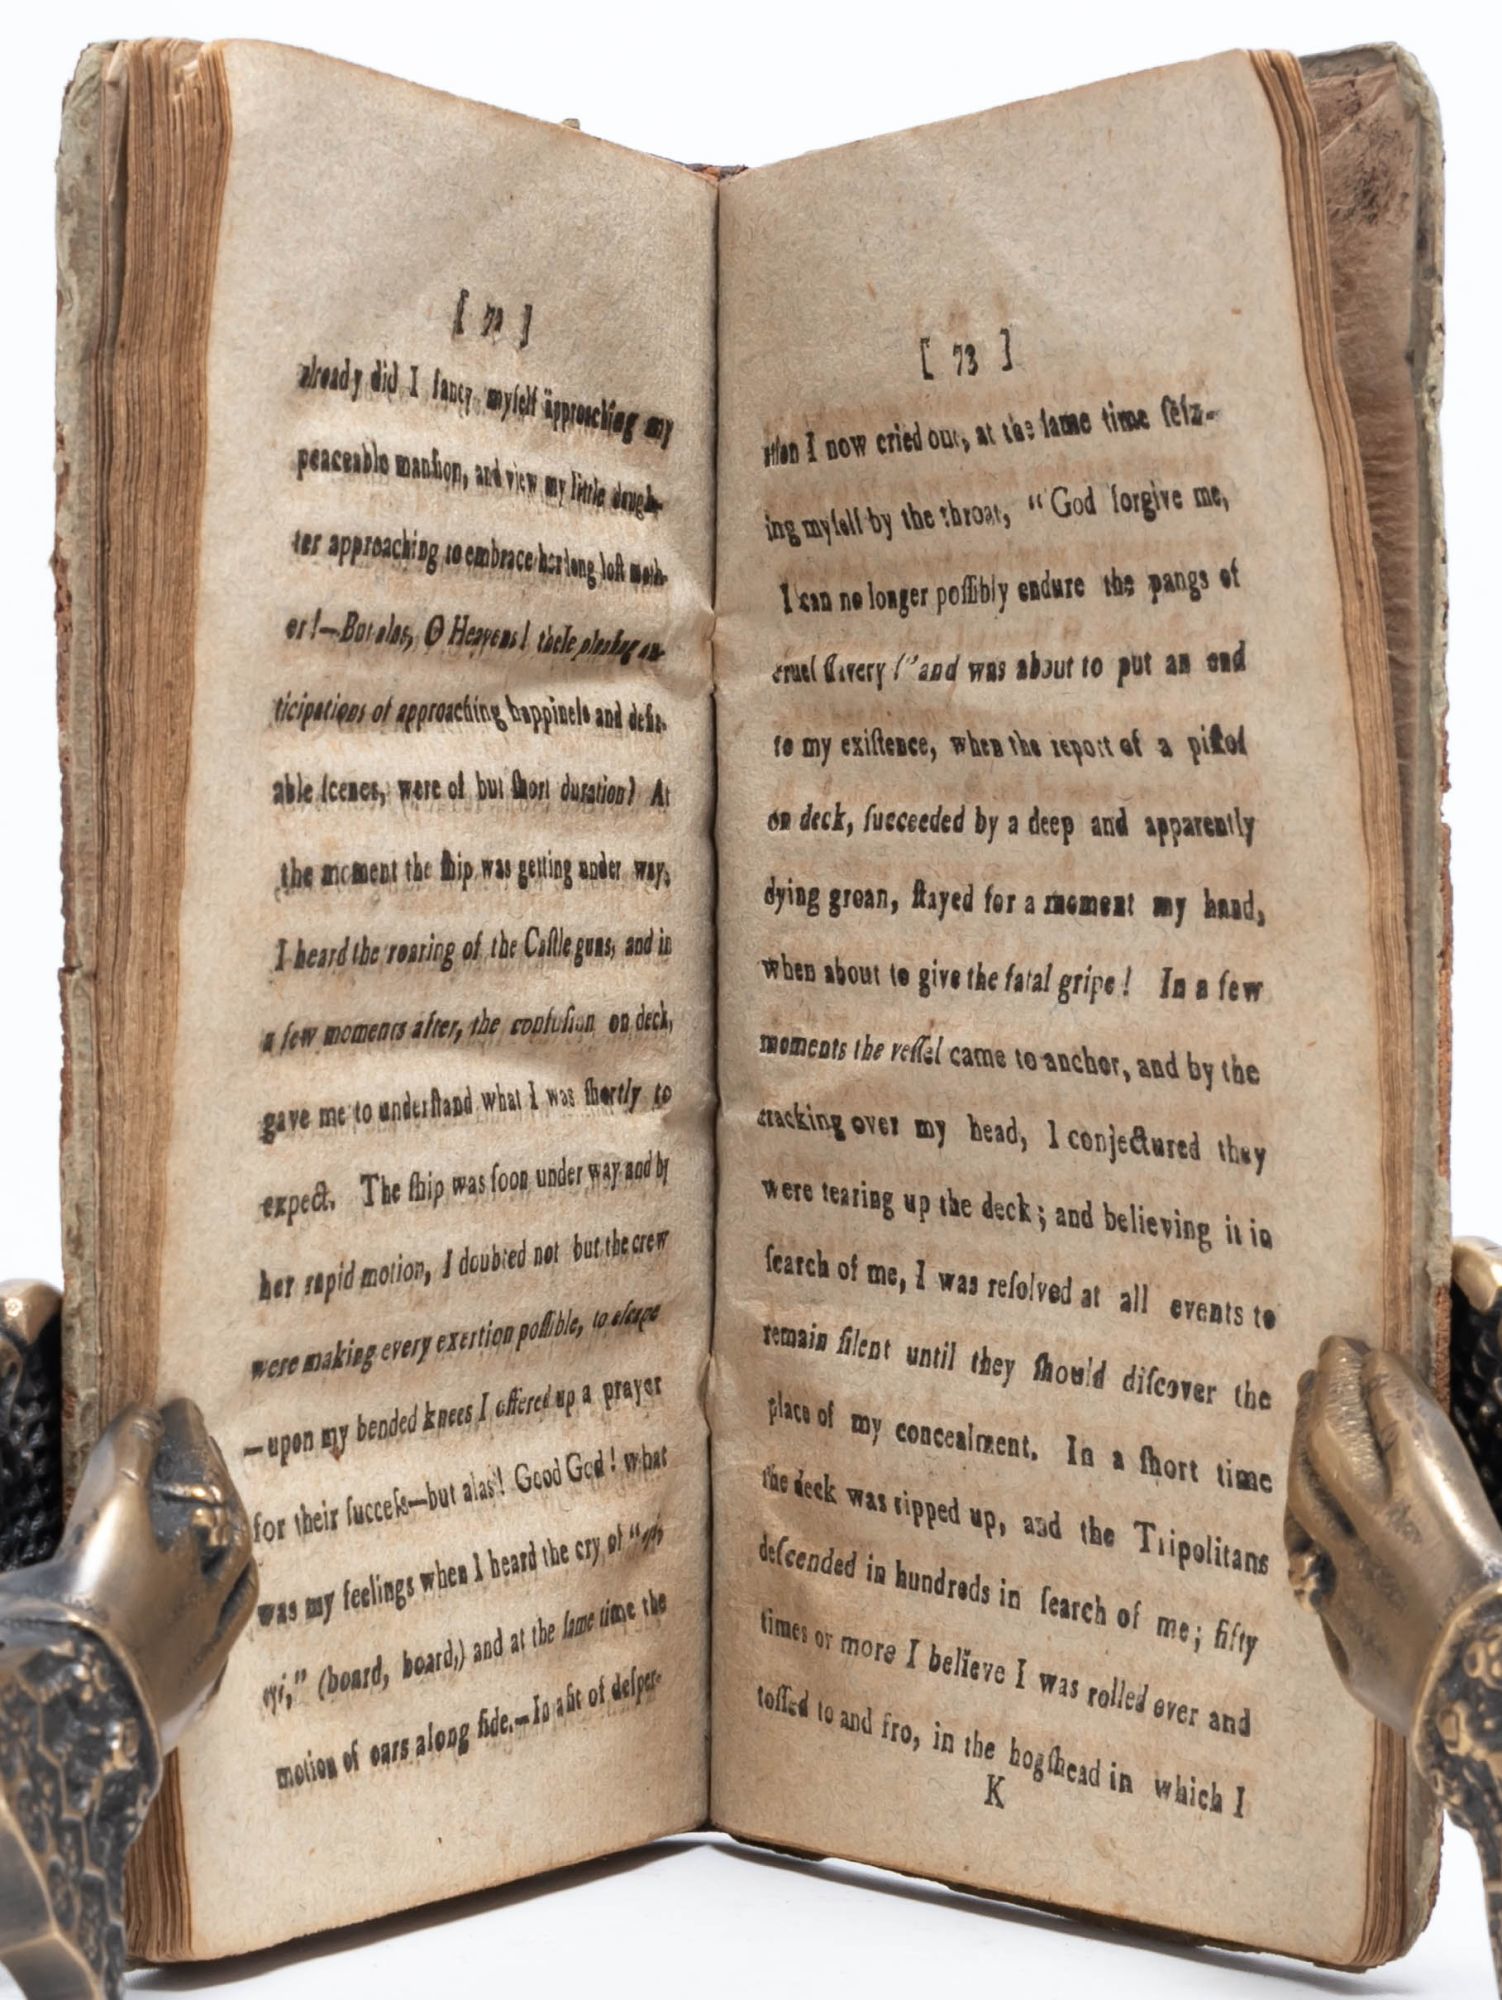 [ 72 ]
already did I fancy myſelf approaching my
peaceable manſion, and view my little daugh-
ter approaching to embrace her long loſt moth-
er!—But alas, O Heavens! theſe pleaſing an-
ticipations of approaching happineſs and deſir-
able ſcenes, were of but ſhort duration! At
the moment the ſhip was getting under way,
I heard the roaring of the Caſtle guns, and in
a few moments after, the confuſion on deck,
gave me to underſtand what I was ſhortly to
expect. The ſhip was ſoon under way and by
her rapid motion, I doubted not but the crew
were making every exertion poſſible, to eſcape
—upon my bended knees I offered up a prayer
for their ſucceſs—but alas! Good God! what
was my feelings when I heard the cry of "
eyi," (board, board,) and at the ſame time the
motion of oars along ſide.—In a fit of deſper-
[ 73 ]
ation I now cried out, at the ſame time ſeiz-
ing myſelf by the throat, "God forgive me,
I can no longer poſſibly endure the pangs of
cruel ſlavery!" and was about to put an end
to my exiſtence, when the report of a piſtol
on deck, ſucceeded by a deep and apparently
dying groan, ſtayed for a moment my hand,
when about to give the fatal gripe! In a few
moments the veſſel came to anchor, and by the
cracking over my head, I conjectured they
were tearing up the deck; and believing it in
ſearch of me, I was reſolved at all events to
remain ſilent until they ſhould diſcover the
place of my concealment. In a ſhort time
the deck was ripped up, and the Tripolitans
deſcended in hundreds in ſearch of me; fifty
times or more I believe I was rolled over and
toſſed to and fro, in the hogſhead in which I
K